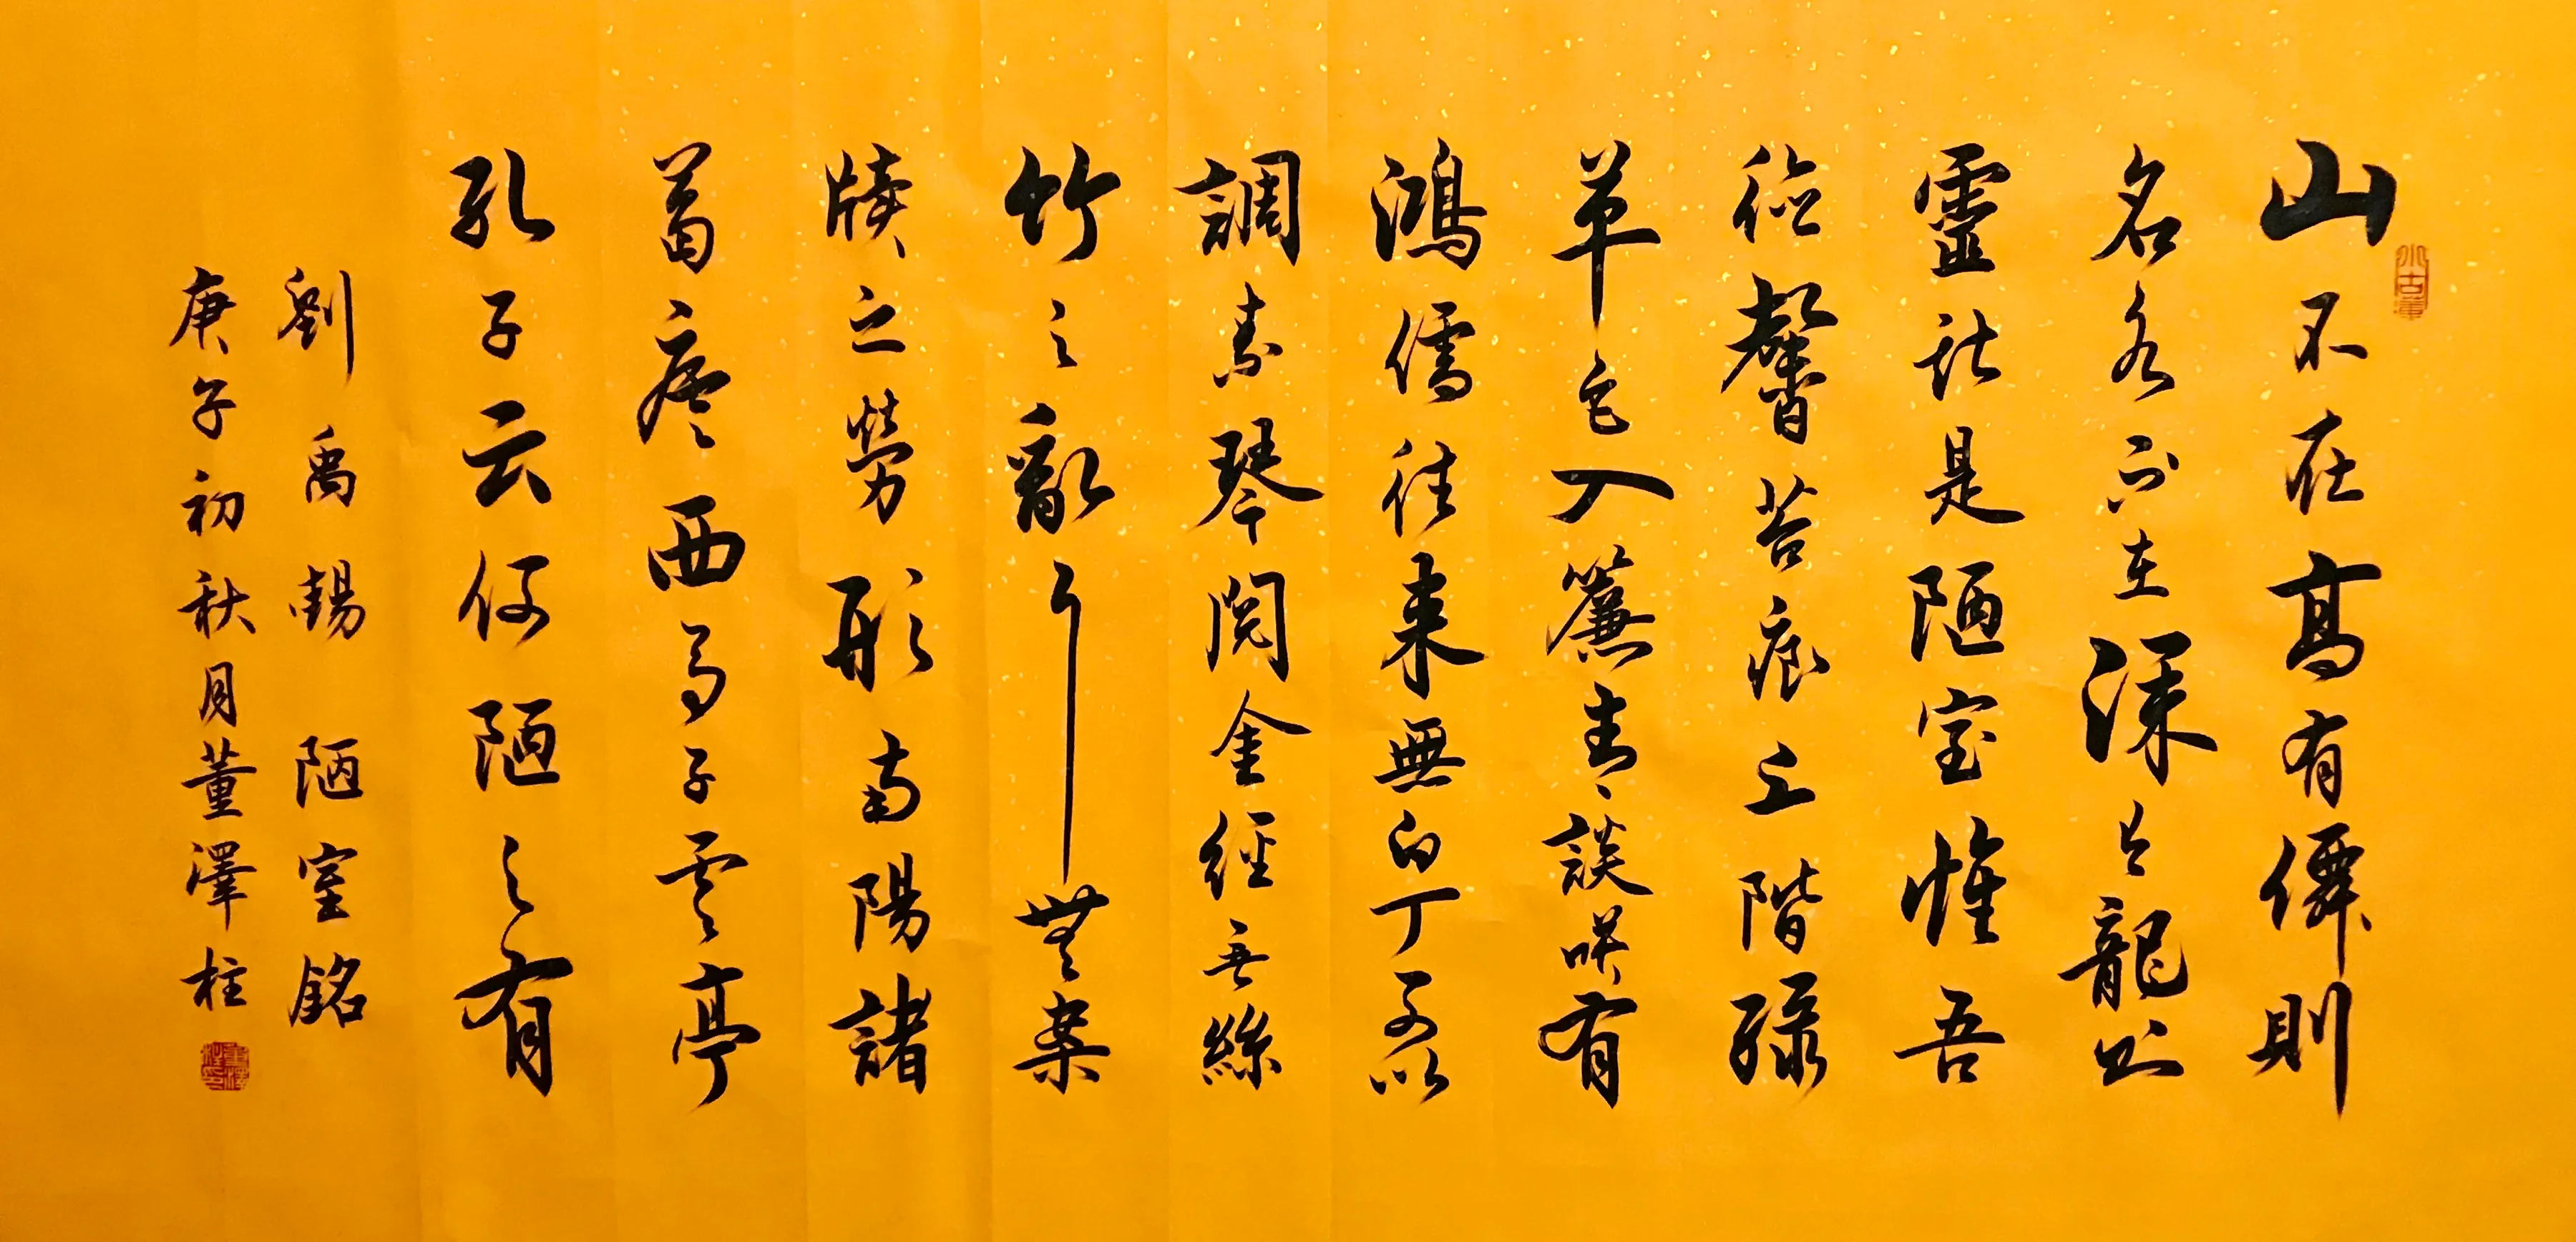 山不在高有僊則
名水不在深有龍則
靈斯是陋室惟吾
德馨苔痕上階綠
草色入簾青談咲有
鴻儒往來無白丁可以
調素琴閱金經無絲
竹之亂耳無案
牘之勞形南陽諸
葛廬西蜀子雲亭
孔子云何陋之有
劉禹錫 陋室銘
庚子初秋月董澤柱